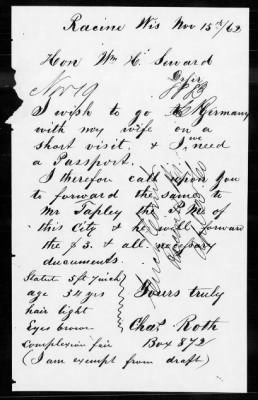 Racine Wis Nov 15th/62
Hon Wm H. Seward
Nov 19
I wish to go to Germany
with my wife on a
short visit, & I need
me
a Passport.
I therefor call upon you
to forward the same to
Mr Tapley the P.M. of
this City & he will forward
the $3. & all necessary
documents.
Statute 5 ft 7 inch
age 34 yrs
hair light
Eyes brown
Complexion fair
Yours truly
Chas. Roth
Box 872
(I am exempt from draft)